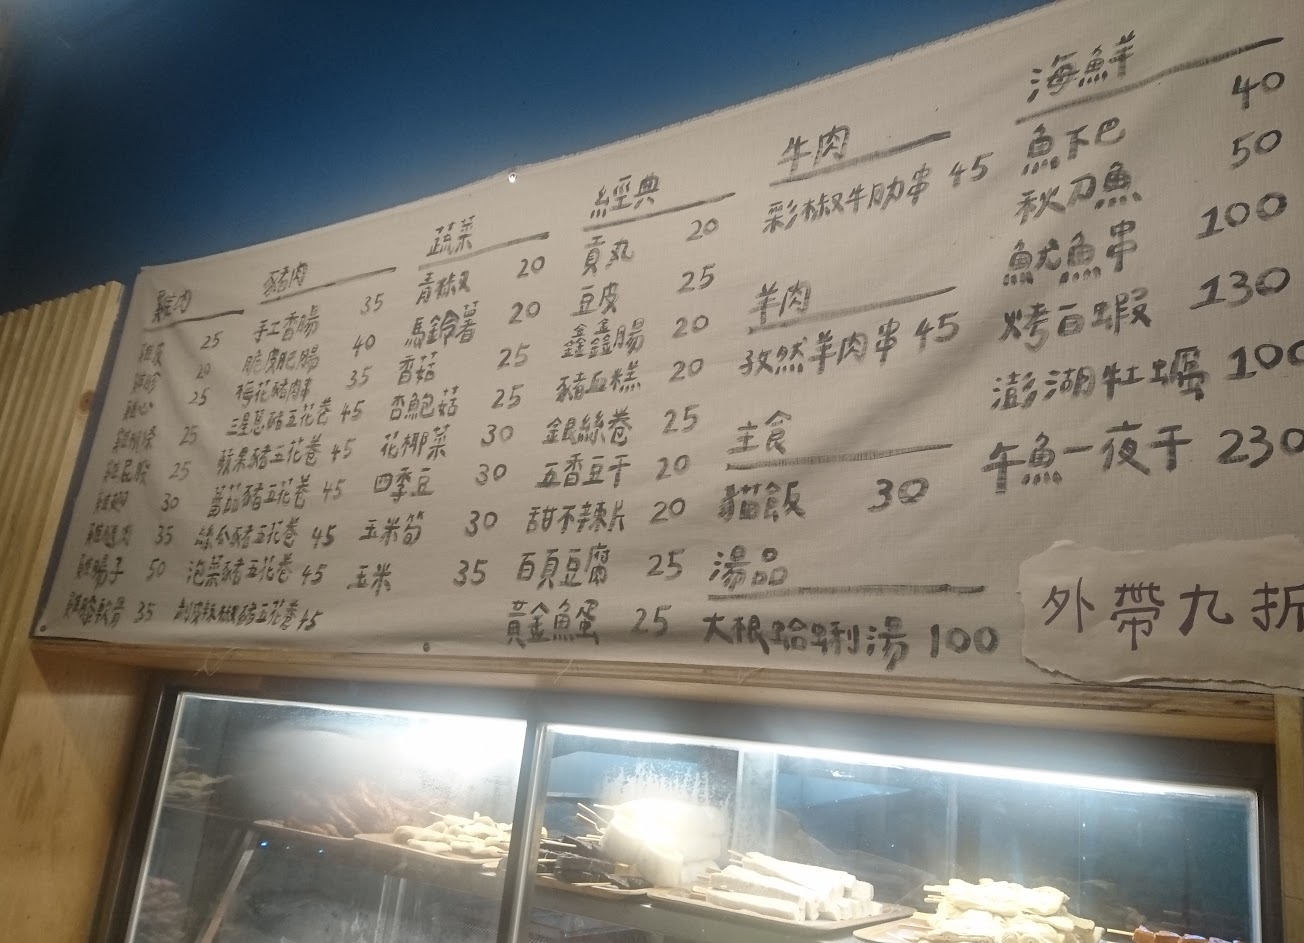 雞肉
雞皮 25
雞胗 20
雞心 25
雞柳條 25
雞屁股 25
雞翅 30
雞腿肉 35
雞腸子 50
雞膝軟骨 35
豬肉
手工香腸 35
脆皮肥腸 40
梅花豬肉串 35
三星蔥豬五花卷 45
蘋果豬五花卷 45
蕃茄豬五花卷 45
絲瓜豬五花卷 45
泡菜豬五花卷 45
剝皮辣椒豬五花卷 45
蔬菜
青椒 20
馬鈴薯 20
香菇 25
杏鮑菇 25
花椰菜 30
四季豆 30
玉米筍 30
玉米 35
經典
貢丸 20
豆皮 25
鑫鑫腸 20
豬血糕 20
銀絲卷 25
五香豆干 20
甜不辣片 20
百頁豆腐 25
黃金魚蛋 25
牛肉
彩椒牛肋串 45
羊肉
孜然羊肉串 45
主食
貓飯 30
湯品
大根蛤蜊湯 100
海鮮
魚下巴 40
秋刀魚 50
魷魚串 100
烤白蝦 130
澎湖牡蠣 100
午魚一夜干 230
外帶九折